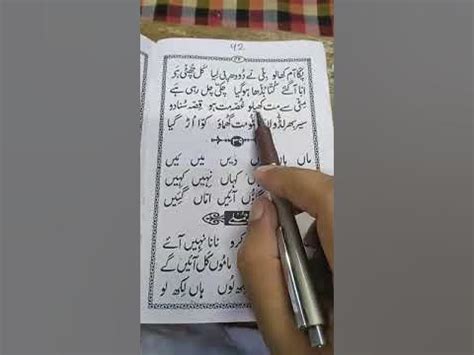 42
پکا آم کھالو بلی نے دودھ پی لیا کل چھٹی ہو
انا آگئے کتا بڈھا ہوگیا چکی چل رہی ہے
مٹی سے مت کھیلو غصہ مت ہو قصہ سنادو
سیر بھر لڈو لا مت گھماؤ کوا اڑ گیا
ماں ہاں دیں میں کیں
کہاں نہیں کہیں
آئیں اماں گئیں
جملے
کرو نانا نہیں آئے
ماموں کل آئیں گے
لوں ہاں لکھ لو